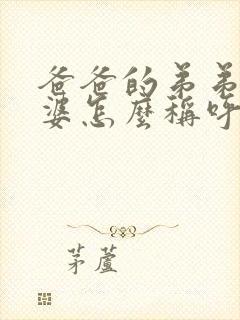 爸爸的弟弟
婆怎麼稱呼
茅蘆